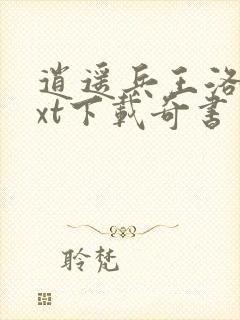 逍遥兵王洛
xt下载奇书
聆梵